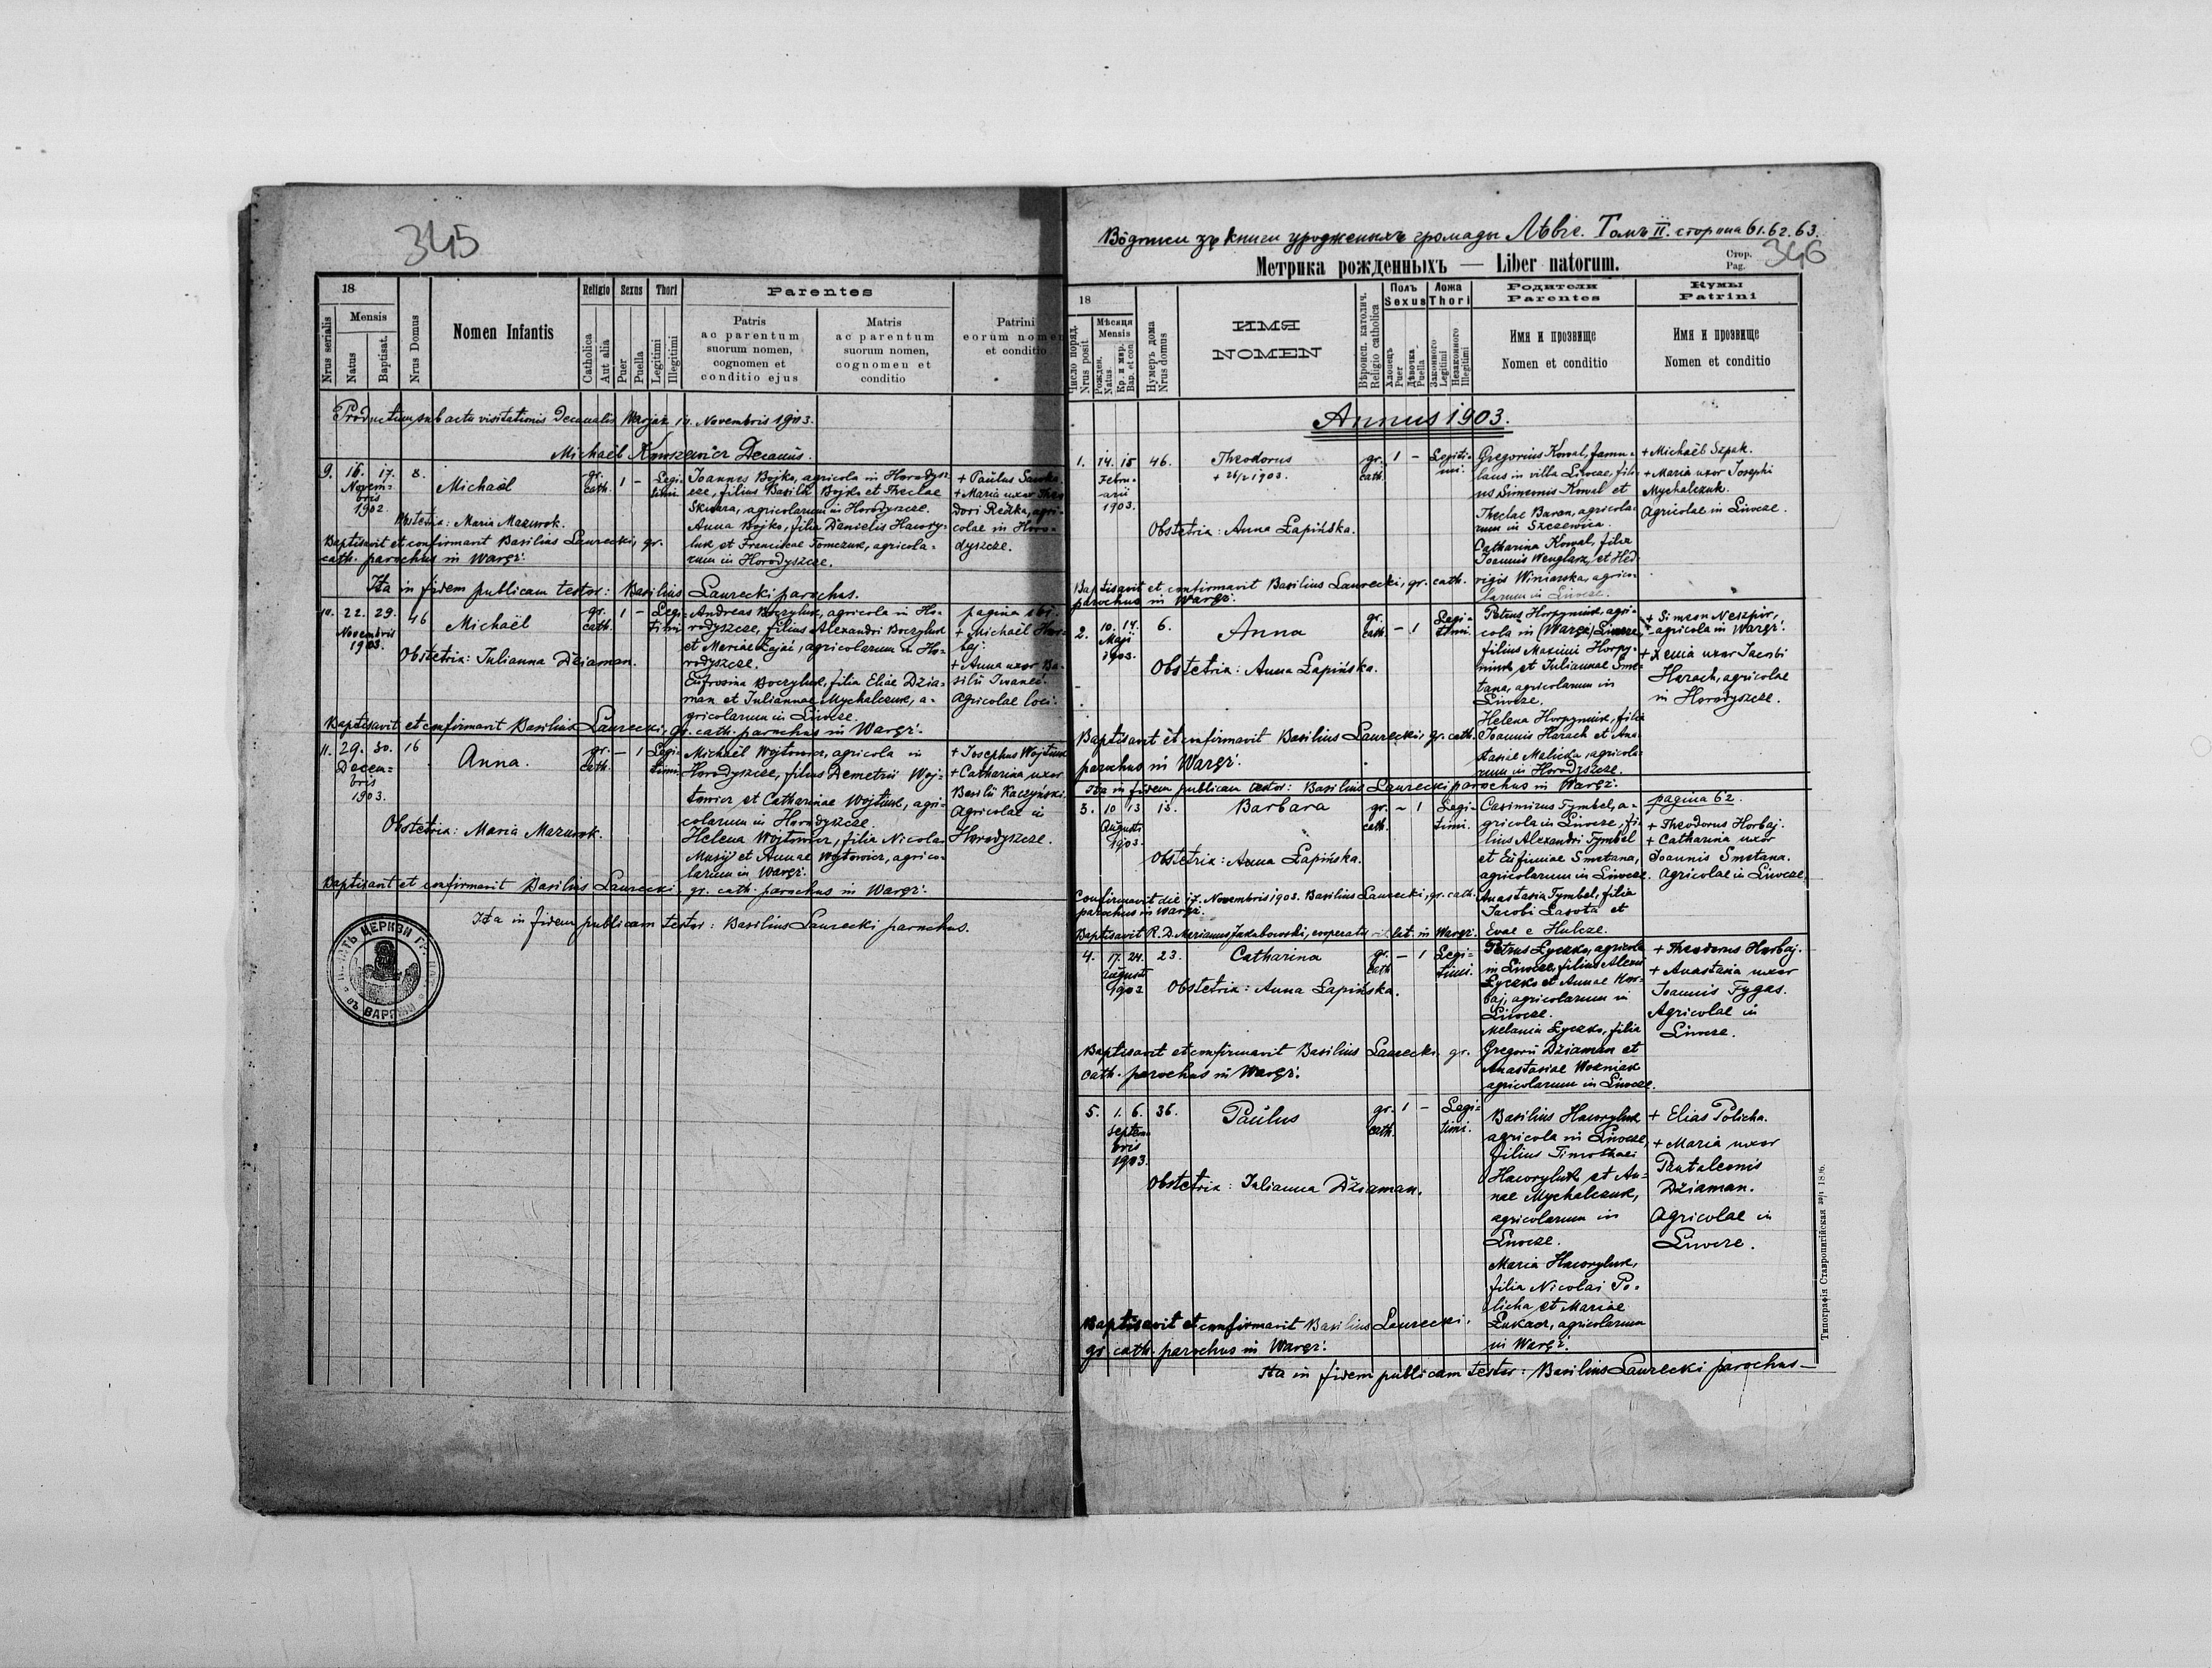 345
18
Mensis
Nrus serialis
Natus
Baptisat.
Nrus Domus
Nomen Infantis
Religio
Catholica
Aut alia
Sexus
Puer
Puella
Thori
Legitimi
Illegitimi
Parentes
Patris
ac parentum
suorum nomen,
cognomen et
conditio ejus
Matris
ac parentum
suorum nomen,
cognomen et
conditio
Patrini
eorum nomen
et conditio
Productum sub actu visitationis Decanalis Warjaz 14. Novembris 1903.
Michaël Decanus.
9. 16. 17. 8. Michaël gr. cath. 1 - Legitimi
Novembris
1902
Obstetrix: Maria Mazurok.
Joannes Bojko, agricola in Horodysz
cze, filius Basilii Bojko et Theclae
Skwara, agricolarum in Horodyszcze.
Anna Bojko, filia Danielis Hawry-
luk et Franciscae Tomczuk, agricola-
rum in Horodyszcze.
+ Paulus Sawka
+ Maria uxor Theo
dori Redka, agri-
colae in Horo-
dyszcze.
Baptisavit et confirmavit Basilius Laurecki, gr.
cath. parochus in Waręż.
Ita in fidem publicam testor: Basilius Laurecki parochus.
10. 22. 29. 46 Michaël gr. cath. 1 - Legitimi
Novembris
1903.
Obstetrix: Julianna Dziaman.
Andreas Boczyluk, agricola in Ho-
rodyszcze, filius Alexandri Boczyluk
et Mariae Zajac, agricolarum in Ho-
rodyszcze.
Eufrosina Boczyluk, filia Eliae Dzia-
man et Juliannae Mychalczuk, a-
gricolarum in Liwcze.
pagina
+ Michaël Hor-
baj.
+ Anna uxor Ba-
silii Iwaneć.
Agricolae loci.
Baptisavit et confirmavit Basilius Laurecki, gr. cath. parochus in Waręż.
11. 29. 30. 16 Anna. gr. cath. - 1 Legitimi
Decem-
bris
1903.
Obstetrix: Maria Mazurok.
Michaël Wojtowicz, agricola in
Horodyszcze, filius Demetrii Woj-
towicz et Catharinae Wojtiuk, agri-
colarum in Horodyszcze.
Helena Wojtowicz, filia Nicolai
Musij et Annae Wojtowicz, agrico-
larum in Waręż.
+ Josephus Wojtiuk
+ Catharina uxor
Basilii Kaczyński.
Agricolae in
Horodyszcze.
Baptisavit et confirmavit Basilius Laurecki, gr. cath. parochus in Waręż.
Ita in fidem publicam testor: Basilius Laurecki parochus.
ПЕЧАТЬ ЦЕРКВИ
ВЪ
Вôдписи зъ книги урод­женыхъ громады Лѣвче. Томъ II. сторона 61. 62. 63.
Метрика рожденныхъ — Liber natorum.
Стор.
Pag.
346
18
Число поряд.
Nrus posit.
Мѣсяця
Mensis
Рожден.
Natus.
Кр. и мир.
Bap. et con
Нумеръ дома
Nrus domus
ИМЯ
NOMEN
Вѣроисп. католич.
Religio catholica
Полъ
Sexus
Хлопець
Puer
Дѣвочка
Puella
Ложа
Thori
Законного
Legitimi
Незаконного
Illegitimi
Родители
Parentes
Имя и прозвище
Nomen et conditio
Кумы
Patrini
Имя и прозвище
Nomen et conditio
Annus 1903.
1. 14. 15 46. Theodorus gr. cath. 1 - Legitimi.
+ 26/2 1903.
Febru-
arii
1903.
Obstetrix: Anna Łapińska.
Gregorius Kowal, famu-
laus in villa Liwcze, fili-
us Simeonis Kowal et
Theclae Baran, agricola-
rum in Szczewica.
Catharina Kowal, filia
Joannis Wenglarz, et Hed-
vigis Winiarska, agrico-
larum in Liwcze.
+ Michaël Szpak.
+ Maria uxor Josephi
Mychalczuk.
Agricolae in Liwcze.
Baptisavit et confirmavit Basilius Laurecki, gr. cath.
parochus in Waręż.
2. 10. 14. 6. Anna gr. cath. - 1 Legitimi.
Maji
1903.
Obstetrix: Anna Łapińska.
Petrus Horpyniuk, agri-
cola in (Waręż) Liwcze,
filius Maximi Horpy-
niuk et Juliannae Sme-
tana, agricolarum in
Liwcze.
Helena Horpyniuk, filia
Joannis Harach et Ana-
stasiae Malicka, agricola-
rum in Horodyszcze.
+ Simeon Neszpir,
- agricola in Waręż.
+ Xenia uxor Jacobi
Harach, agricolae
in Horodyszcze.
Baptisavit et confirmavit Basilius Laurecki, gr. cath.
parochus in Waręż.
Ita in fidem publicam testor: Basilius Laurecki parochus in Waręż.
3. 10 13 13. Barbara gr. cath. - 1 Legitimi.
Augusti
1903.
Obstetrix: Anna Łapińska.
Casimirus Tymbel, a-
gricola in Liwcze, fi-
lius Alexandri Tymbel
et Eufimiae Smetana,
agricolarum in Liwcze.
Anastasia Tymbel, filia
Jacobi Lasota et
Evae e Hulcze.
pagina 62.
+ Theodorus Horbaj.
+ Catharina uxor
Joannis Smetana.
Agricolae in Liwcze.
Confirmavit die 17. Novembris 1903. Basilius Laurecki, gr. cath.
parochus in Waręż.
Baptisavit R. D. Marianus Jakubowski, cooperator lat. in Waręż.
4. 17. 24. 23. Catharina gr. cath - 1 Legitimi.
Augusti
1903
Obstetrix: Anna Łapińska.
Petrus Łyczko, agricola
in Liwcze, filius Alexii
Łyczko et Annae Hor-
baj, agricolarum in
Liwcze.
Melania Łyczko, filia
Gregorii Dziaman et
Anastasiae Wozniak
agricolarum in Liwcze.
+ Theodorus Horbaj.
+ Anastasia uxor
Joannis Fygas.
Agricolae in
Liwcze.
Baptisavit et confirmavit Basilius Laurecki, gr.
cath. parochus in Waręż.
5. 1. 6. 36. Paulus gr. cath. 1 - Legitimi.
Septem-
bris
1903.
Obstetrix: Julianna Dziaman.
Basilius Hawryluk
agricola in Liwcze,
filius Timothaei
Hawryluk et An-
nae Mychalczuk,
agricolarum in
Liwcze.
Maria Hawryluk,
filia Nicolai Po-
licha et Mariae
Łukacz, agricolarum
in Waręż.
+ Elias Policha.
+ Maria uxor
Pantaleonis
Dziaman.
Agricolae in
Liwcze.
Baptisavit et confirmavit Basilius Laurecki,
gr. cath. parochus in Waręż.
Ita in fidem publicam testor: Basilius Laurecki parochus —
Типографія Ставропигійская